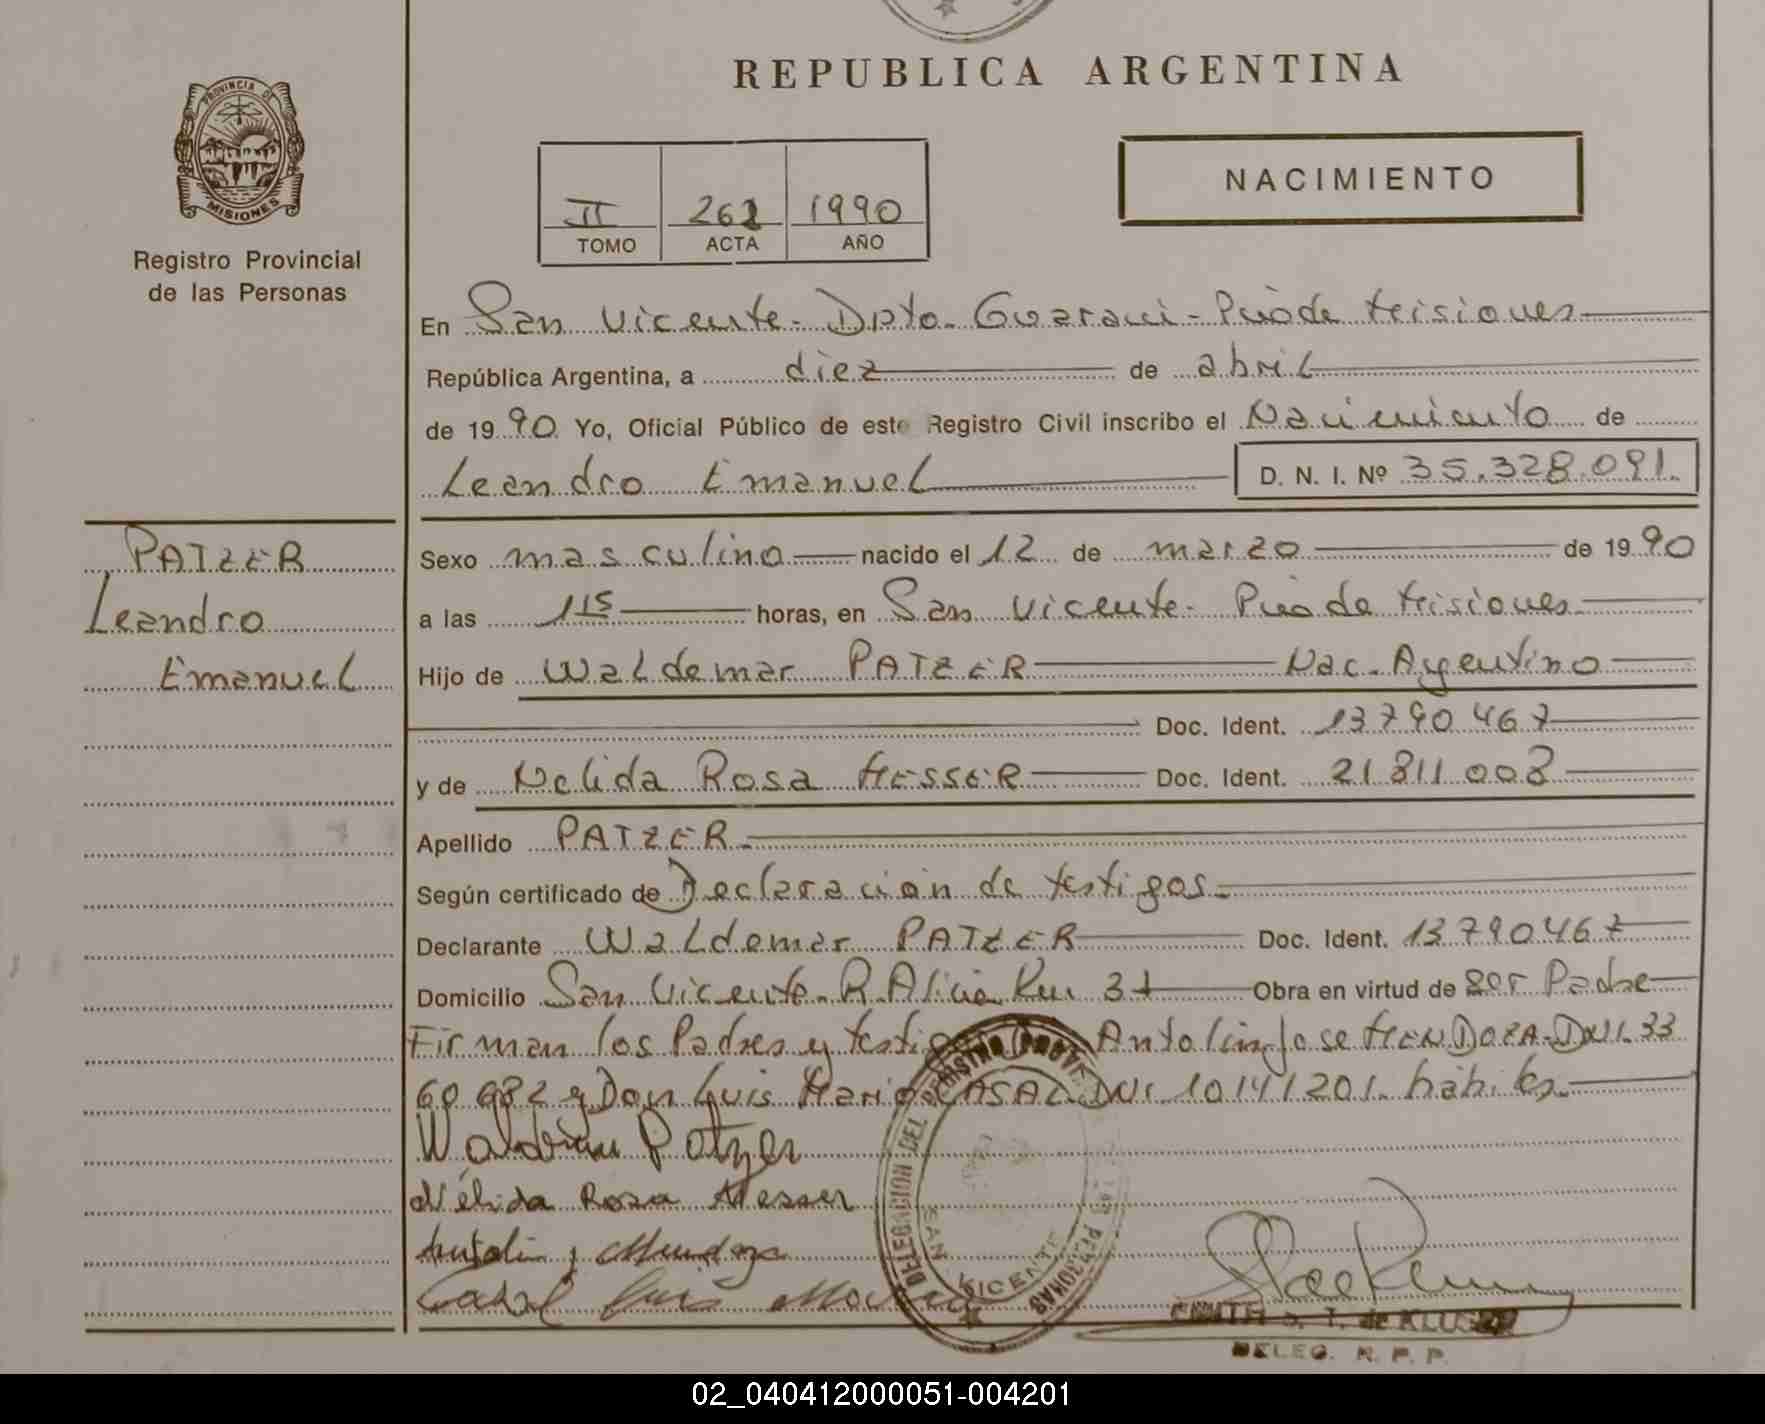 REPUBLICA ARGENTINA
PROVINCIA DE
MISIONES
Registro Provincial
de las Personas
II 262 1990
TOMO ACTA AÑO
NACIMIENTO
En San Vicente - Dpto. Guaraní - Pcia de Misiones
República Argentina, a diez de abril
de 1990 Yo, Oficial Público de este Registro Civil inscribo el Nacimiento de
Leandro Emanuel D. N. I. Nº 35.328.091.
PATZER
Leandro
Emanuel
Sexo masculino nacido el 12 de marzo de 1990
a las 1 15 horas, en San Vicente - Pcia de Misiones
Hijo de Waldemar PATZER Nac. Argentino
Doc. Ident. 13790467
y de Nelida Rosa MESSER Doc. Ident. 21811008
Apellido PATZER
Según certificado de Declaración de testigos
Declarante Waldemar PATZER Doc. Ident. 13790467
Domicilio San Vicente - P. Alicia Km 37 Obra en virtud de ser Padre
Firman los Padres y Antolin Jose MENDOZA - DNI.
y Don Luis Mario DNI 10141201. hábiles
Waldemar Patzer
Nélida Rosa Messer
Antolin j Mendoza
Luis
DELEGACION DEL REGISTRO PROV. DE LAS PERSONAS
SAN VICENTE
S. T. de
DELEG. R. P. P.
02_040412000051-004201